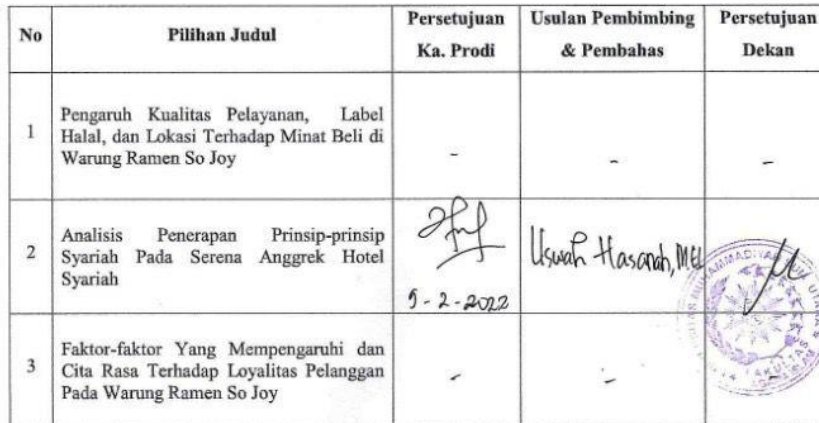 No
Pilihan Judul
Persetujuan
Ka. Prodi
Usulan Pembimbing
& Pembahas
Persetujuan
Dekan
1
Pengaruh Kualitas Pelayanan, Label
Halal, dan Lokasi Terhadap Minat Beli di
Warung Ramen So Joy
-
-
-
2
Analisis Penerapan Prinsip-prinsip
Syariah Pada Serena Anggrek Hotel
Syariah
5-2-2022
Uswah Hasanah, MEI
MUHAMMADIYAH
UTARA
FAKULTAS
3
Faktor-faktor Yang Mempengaruhi dan
Cita Rasa Terhadap Loyalitas Pelanggan
Pada Warung Ramen So Joy
-
-
-